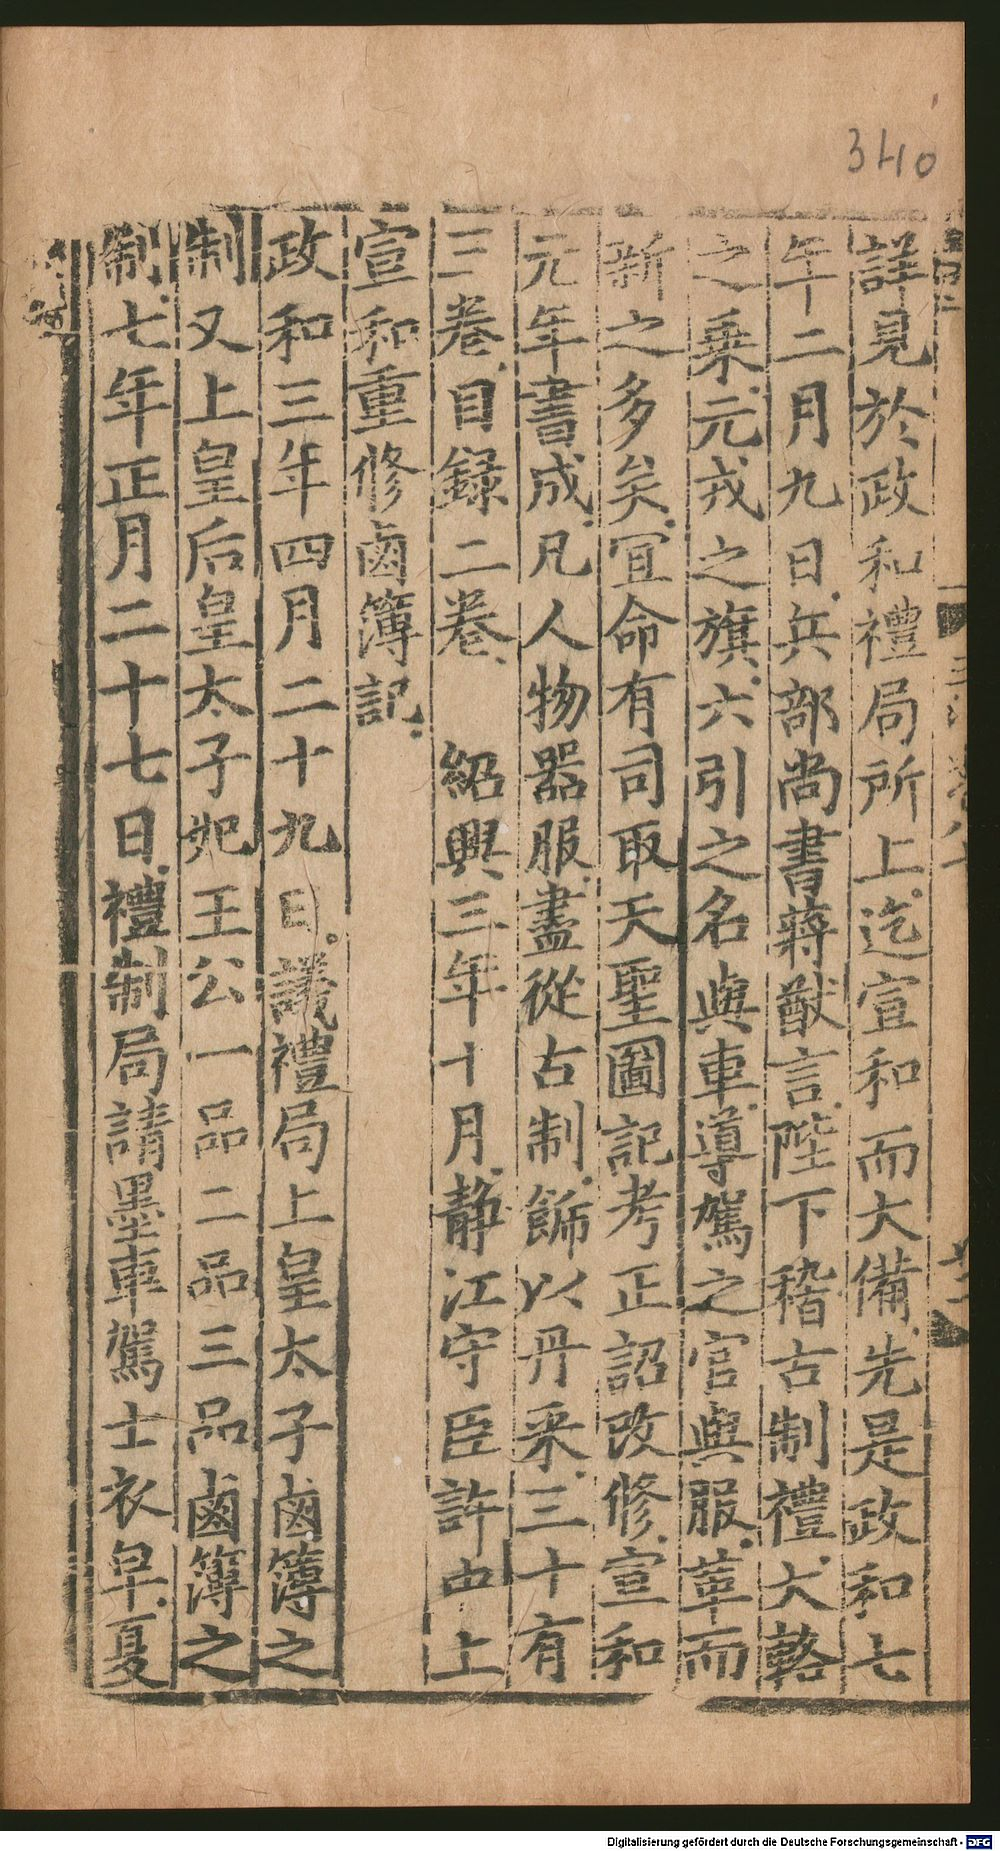 340
詳見於政和禮局所上迄宣和而大備先是政和七
年二月九日兵部尚書蔣猷言陛下稽古制禮大輅
之乗元戎之旗六引之名與車導駕之官與服革而
新之多矣宜命有司取天聖圖記考正詔改修宣和
元年書成凡人物器服盡從古制飾以丹采三十有
三卷目錄二卷 紹興三年十月静江守臣許中上
宣和重修鹵簿記
政和三年四月二十九日議禮局上皇太子鹵簿之
制又上皇后皇太子妃王公一品二品三品鹵簿之
制七年正月二十七日禮制局請墨車駕士衣皁夏
Digitalisierung gefördert durch die Deutsche Forschungsgemeinschaft - DFG